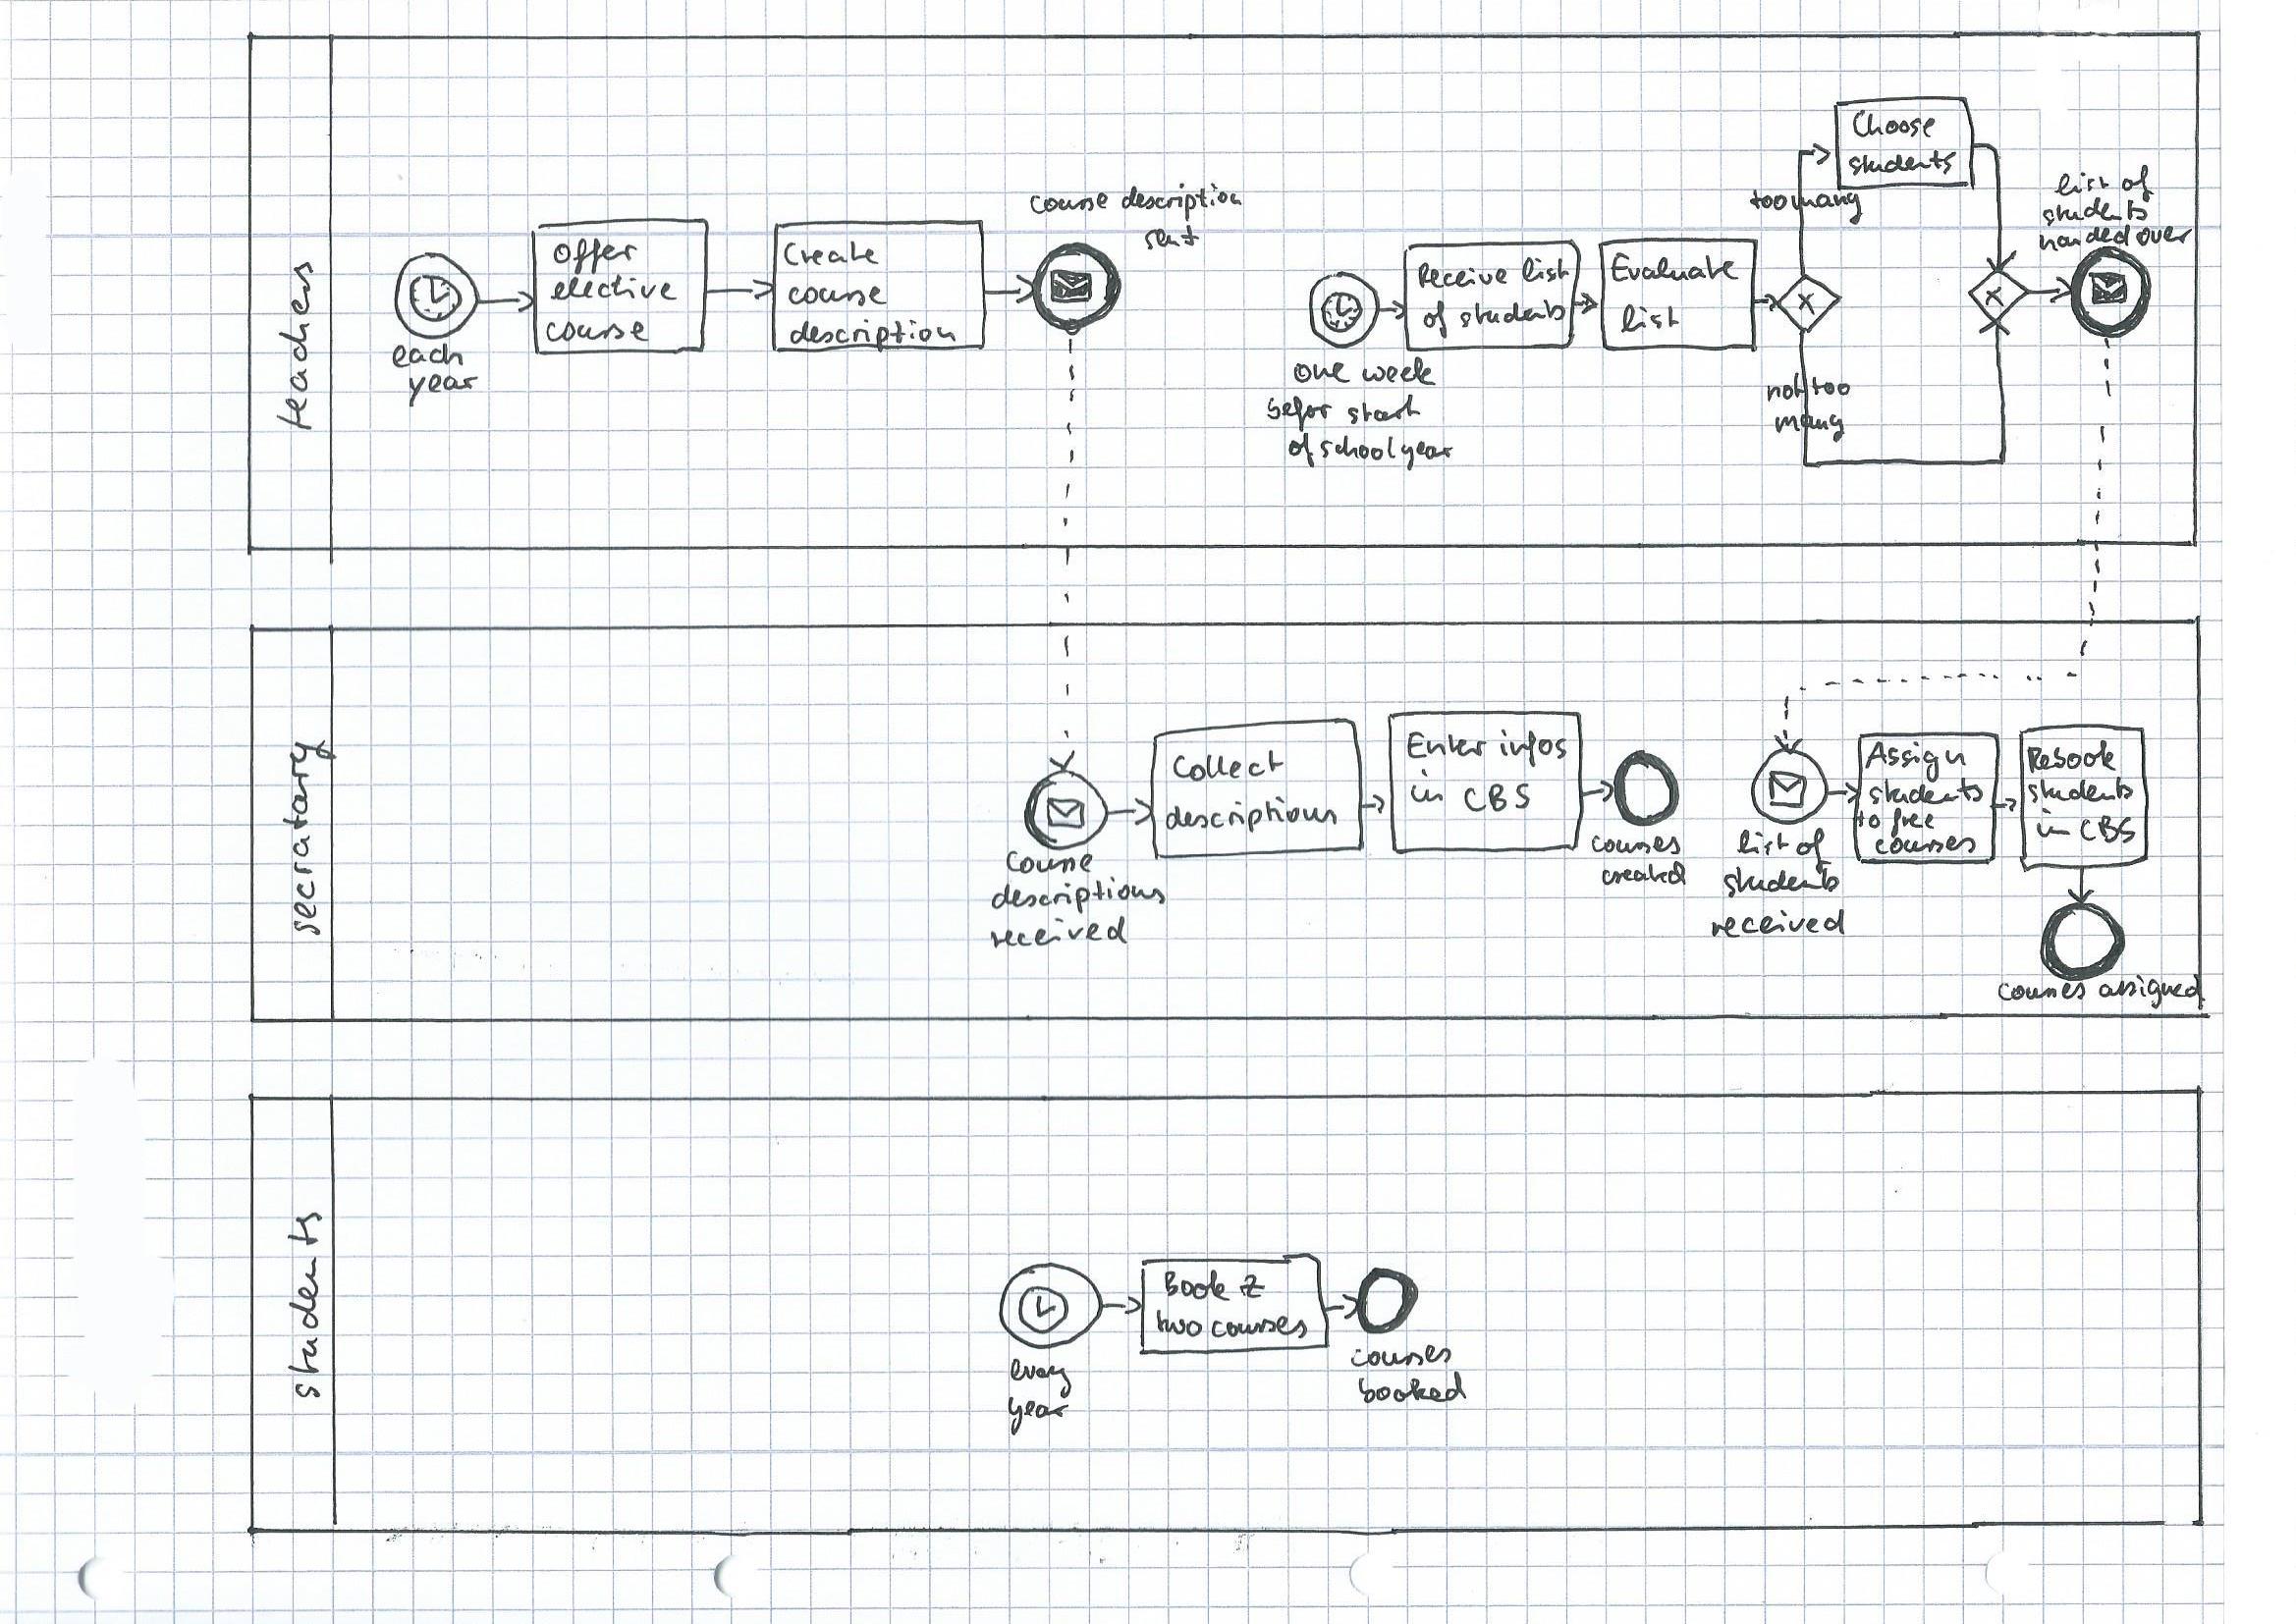 teachers
each
year
Offer
elective
course
Create
course
description
course description
sent
one week
befor start
of school year
Receive list
of students
Evaluate
list
too many
not too
many
Choose
students
X
X
list of
students
handed over
secratary
Course
descriptions
received
Collect
descriptions
Enter infos
in CBS
courses
created
list of
students
received
Assign
students
to free
courses
Rebook
students
in CBS
courses assigned
students
every
year
Book
two courses
courses
booked